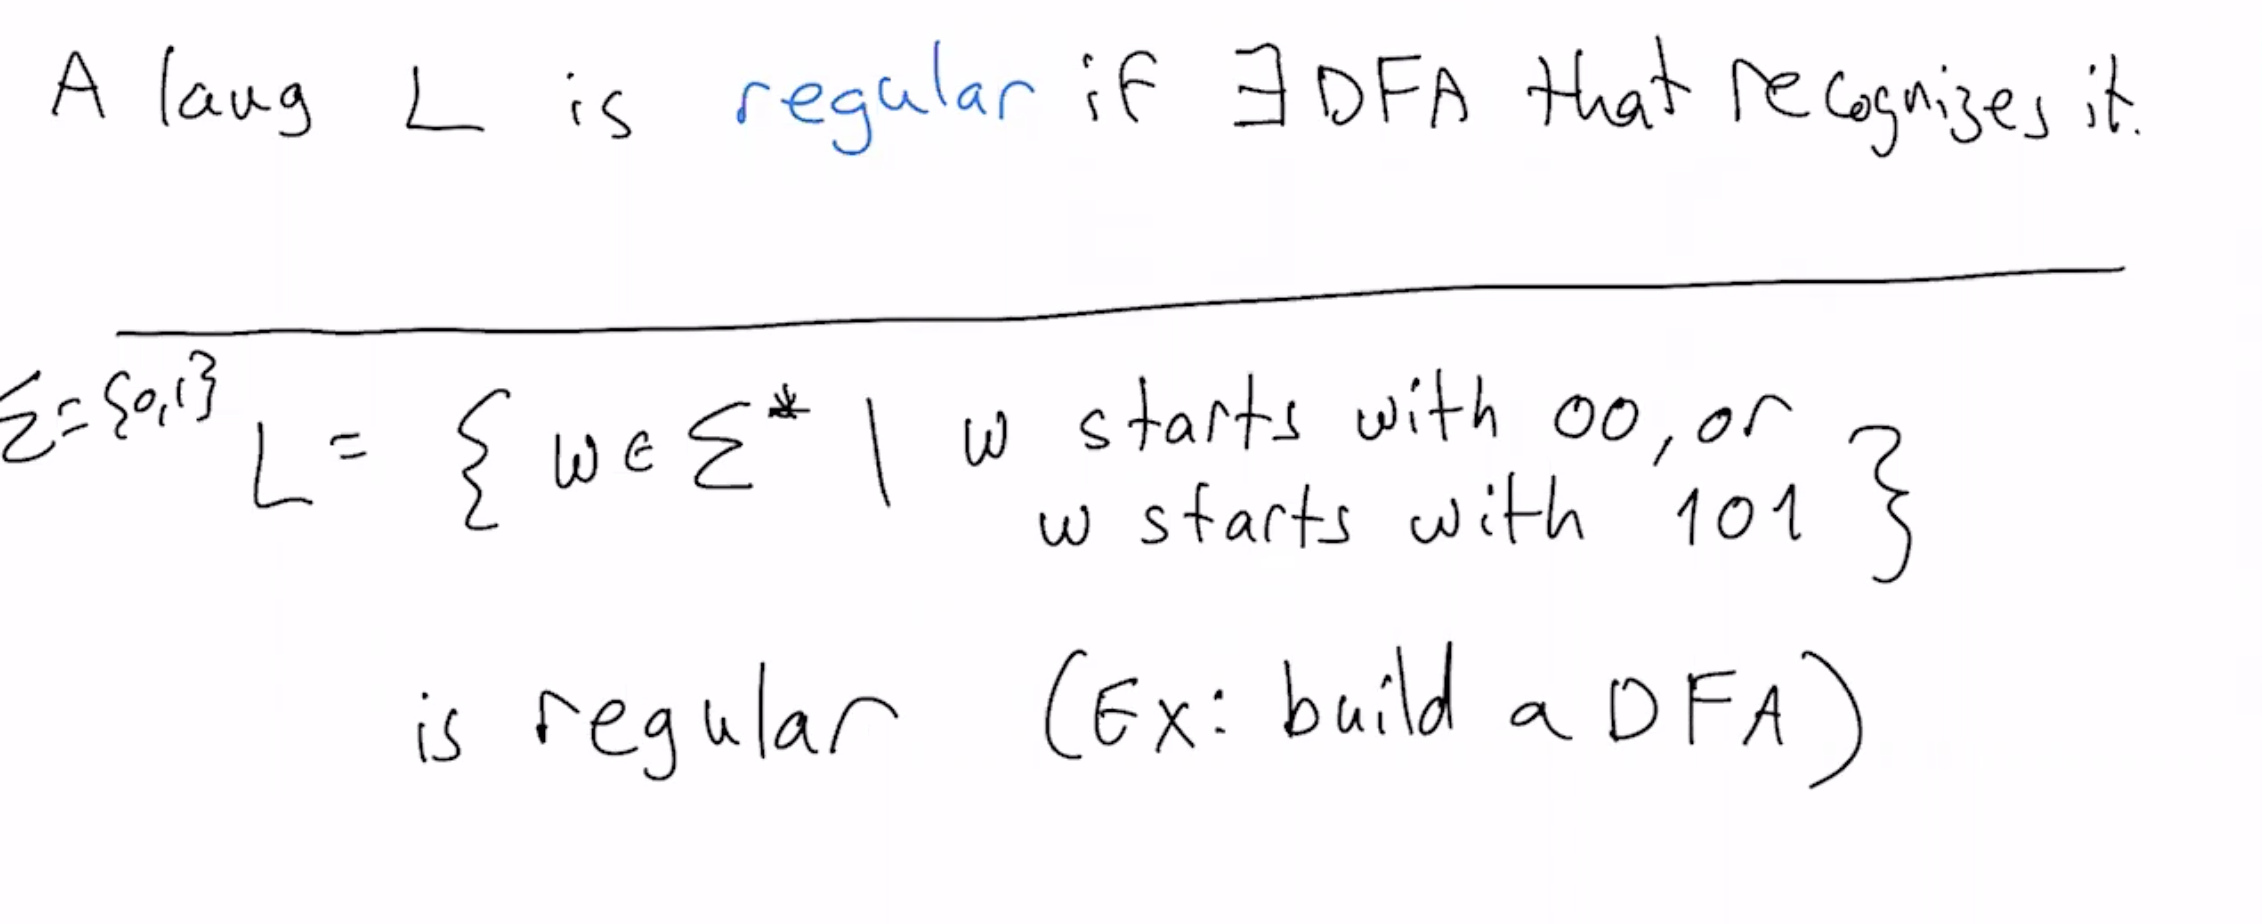 A lang L is regular if ∃ DFA that recognizes it.
Σ={0,1}
L = { w ∈ Σ* | w starts with 00, or
w starts with 101 }
is regular (Ex: build a DFA)